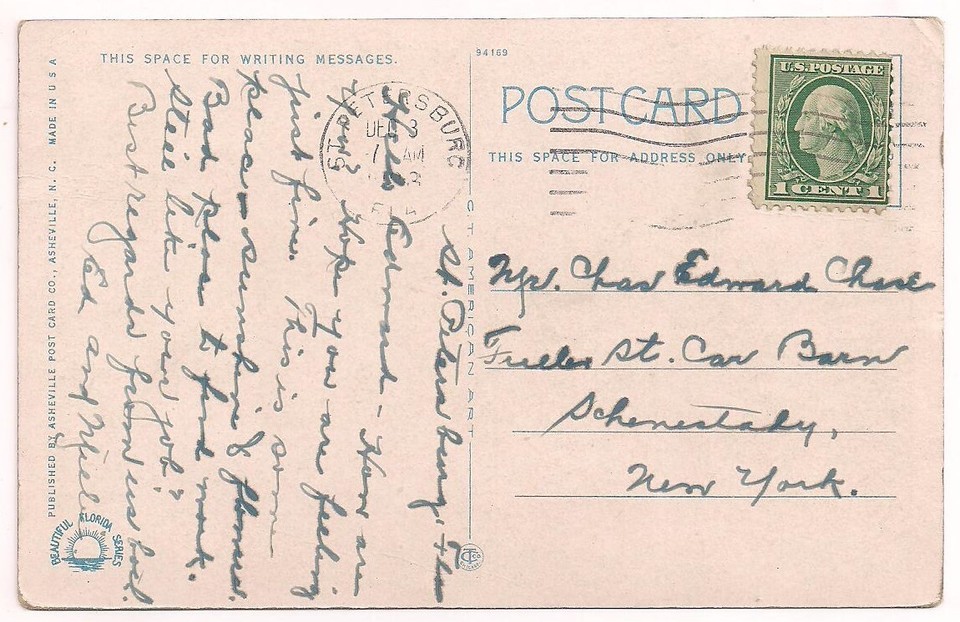 THIS SPACE FOR WRITING MESSAGES.
94169
POST CARD
THIS SPACE FOR ADDRESS ONLY
U.S. POSTAGE
1 CENT 1
ST. PETERSBURG
DEC 3
AM
FLA
St. Petersburg, Fla
Hello Edward - How are
you? Hope you are feeling
just fine. This is some
place - sunshine & flowers.
Bad place to find work.
Still like your job?
Best regards from us both.
Ed and
Mr. Chas Edward Chase
Fuller St. Car Barn
Schenectady,
New York.
PUBLISHED BY ASHEVILLE POST CARD CO., ASHEVILLE, N. C. MADE IN U S A
BEAUTIFUL FLORIDA SERIES
C T AMERICAN ART